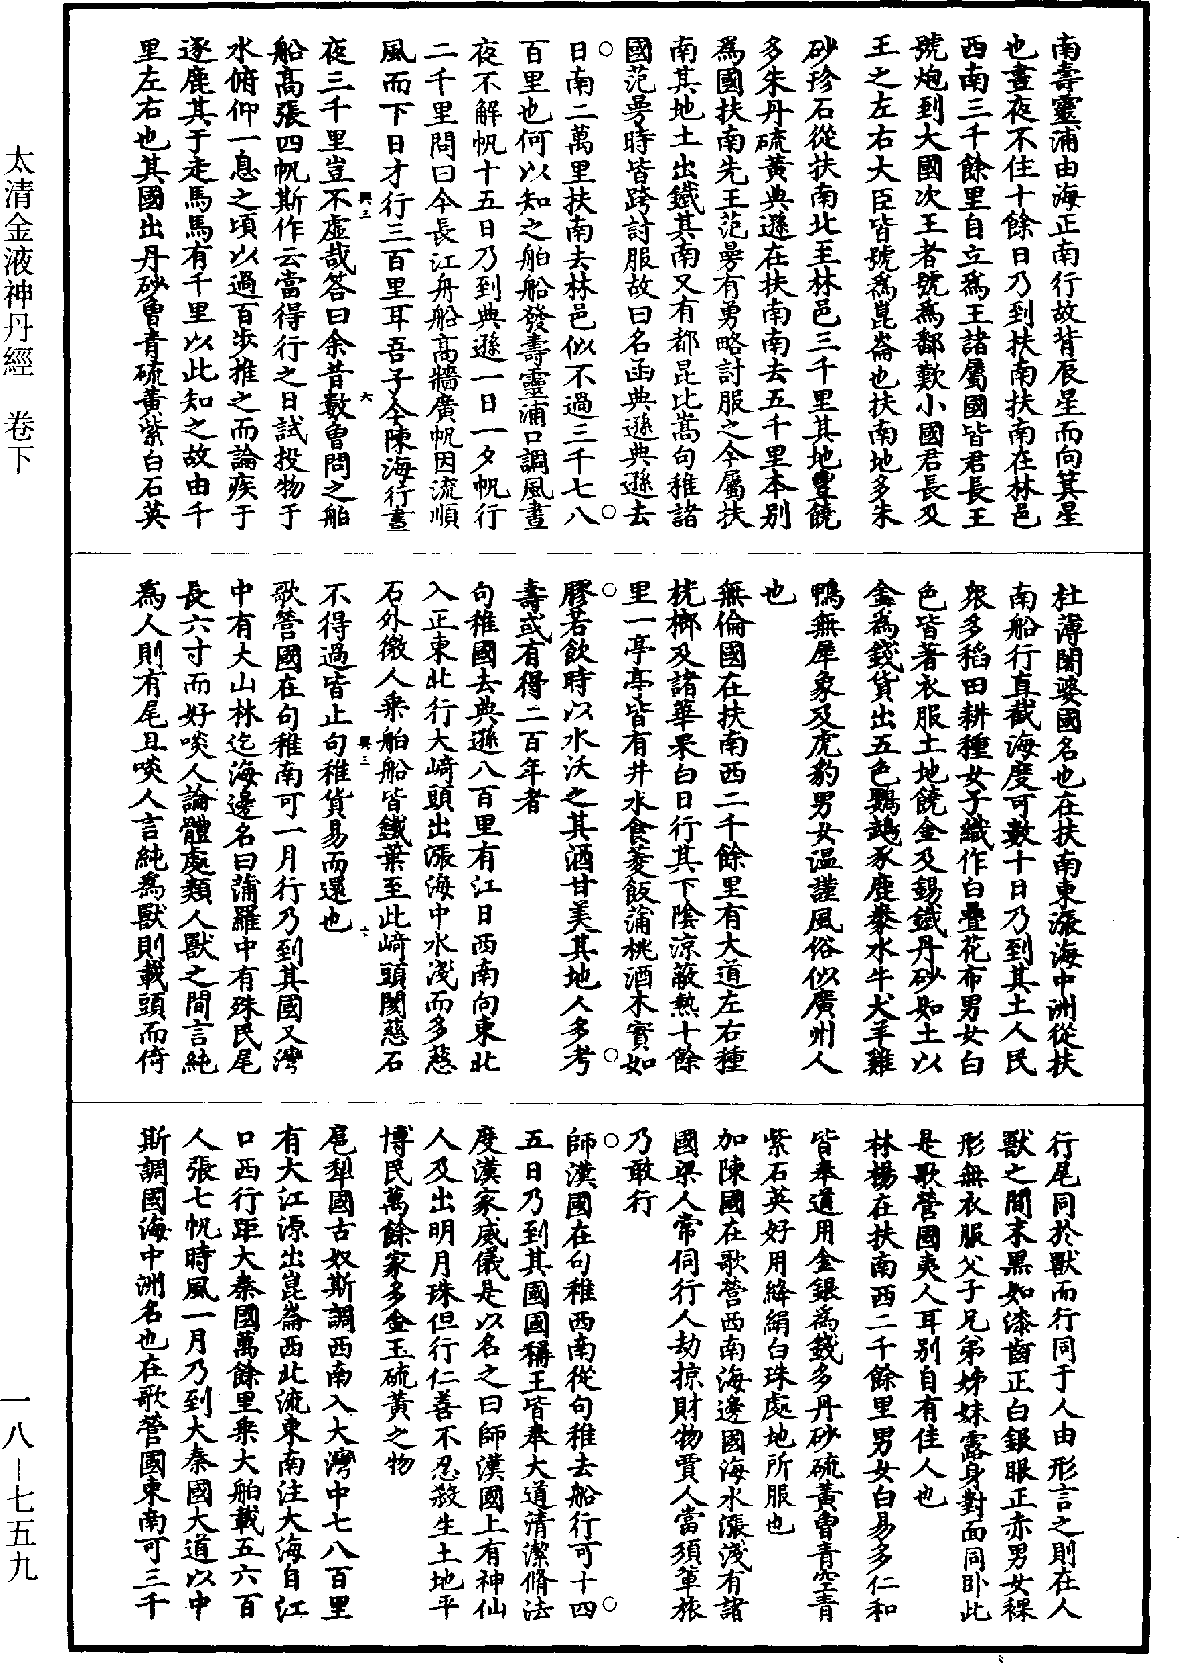 南壽靈浦由海正南行故背辰星而向箕星
也晝夜不住十餘日乃到扶南扶南在林邑
西南三千餘里自立爲王諸屬國皆君長王
號炮到大國次王者號爲鄱歎小國君長及
王之左右大臣皆號爲崑崙也扶南地多朱
砂珍石從扶南北至林邑三千里其地豐饒
多朱丹硫黃典遜在扶南南去五千里本別
爲國扶南先王范旻有勇略討服之今屬扶
南其地土出鐵其南又有都昆比嵩句稚諸
國范旻時皆跨討服故曰名函典遜典遜去
日南二萬里扶南去林邑似不過三千七八
百里也何以知之舶船發壽靈浦口調風晝
夜不解帆十五日乃到典遜一日一夕帆行
二千里問曰今長江舟船高牆廣帆因流順
風而下日才行三百里耳吾子今陳海行晝
夜三千里豈不虛哉答曰余昔數曾問之舶
船高張四帆斯作云當得行之日試投物于
水俯仰一息之頃以過百步推之而論疾于
逐鹿其于走馬馬有千里以此知之故由千
里左右也其國出丹砂曾青硫黃紫白石英
杜薄闍婆國名也在扶南東漲海中洲從扶
南船行直截海度可數十日乃到其土人民
衆多稻田耕種女子織作白疊花布男女白
色皆著衣服土地饒金及錫鐵丹砂如土以
金爲錢貨出五色鸚鵡豕鹿豢水牛犬羊雞
鴨無犀象及虎豹男女溫謹風俗似廣州人
也
無倫國在扶南西二千餘里有大道左右種
桄榔及諸華果白日行其下陰涼蔽熱十餘
里一亭亭皆有井水食菱飯蒲桃酒木實如
膠若飲時以水沃之其酒甘美其地人多考
壽或有得二百年者
句稚國去典遜八百里有江日西南向東北
入正東北行大崎頭出漲海中水淺而多慈
石外徼人乘舶船皆鐵葉至此崎頭閡慈石
不得過皆止句稚貨易而還也
歌營國在句稚南可一月行乃到其國又灣
中有大山林迄海邊名曰蒲羅中有殊民尾
長六寸而好啖人論體處類人獸之間言純
爲人則有尾且啖人言純爲獸則載頭而倚
行尾同於獸而行同于人由形言之則在人
獸之間末黑如漆齒正白銀眼正赤男女裸
形無衣服父子兄弟姊妹露身對面同臥此
是歌營國夷人耳別自有佳人也
林楊在扶南西二千餘里男女白易多仁和
皆奉道用金銀爲錢多丹砂硫黃曾青空青
紫石英好用絳絹白珠處地所服也
加陳國在歌營西南海邊國海水漲淺有諸
國梁人常伺行人劫掠財物賈人當須輩旅
乃敢行
師漢國在句稚西南從句稚去船行可十四
五日乃到其國國稱王皆奉大道清潔脩法
度漢家威儀是以名之曰師漢國上有神仙
人及出明月珠但行仁善不忍殺生土地平
博民萬餘家多金玉硫黃之物
扈犁國古奴斯調西南入大灣中七八百里
有大江源出崑崙西北流東南注大海自江
口西行距大秦國萬餘里乘大舶載五六百
人張七帆時風一月乃到大秦國大道以中
斯調國海中洲名也在歌營國東南可三千
興三
六
興三
六
太清金液神丹經 卷下
一八—七五九